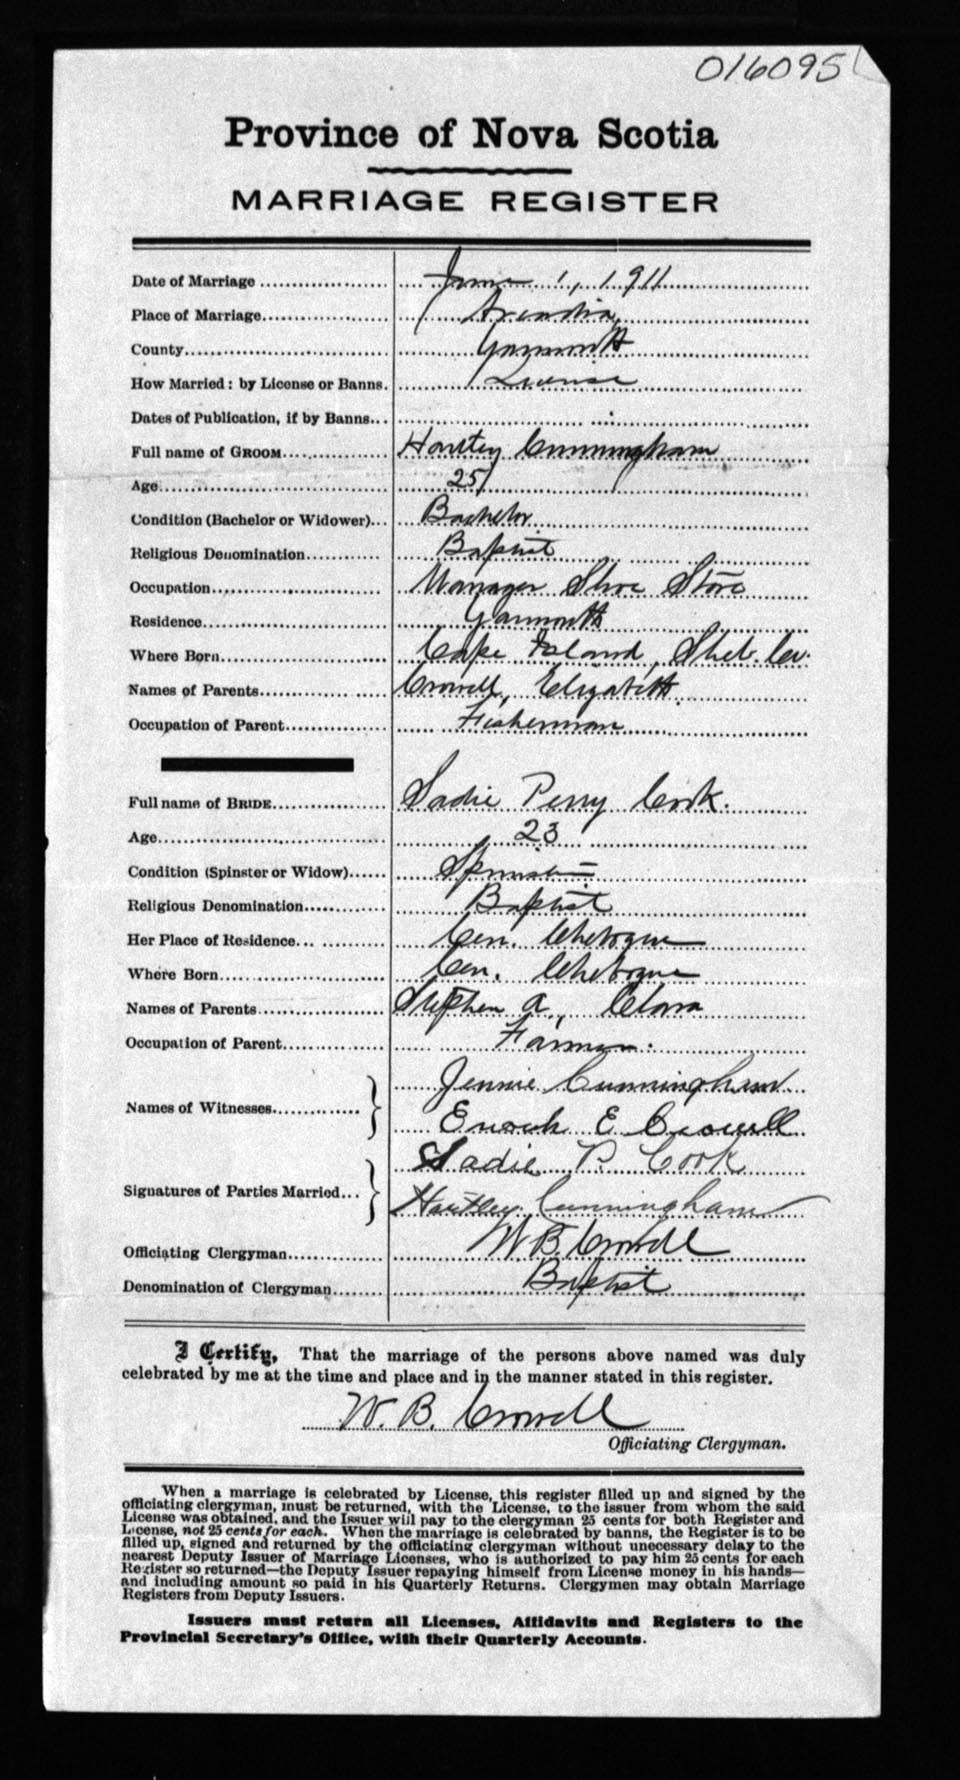 016095
Province of Nova Scotia
MARRIAGE REGISTER
Date of Marriage June 1, 1911
Place of Marriage Arcadia
County Yarmouth
How Married: by License or Banns. License
Dates of Publication, if by Banns
Full name of GROOM Hartley Cunningham
Age 25
Condition (Bachelor or Widower) Bachelor
Religious Denomination Baptist
Occupation Manager Shoe Store
Residence Yarmouth
Where Born Cape Island, Shel. Co.
Names of Parents Crowell, Elizabeth
Occupation of Parent Fisherman
Full name of BRIDE Sadie Perry Cook.
Age 23
Condition (Spinster or Widow) Spinster
Religious Denomination Baptist
Her Place of Residence Cen. Chebogue
Where Born Cen. Chebogue
Names of Parents Stephen A., Clara
Occupation of Parent Farmer.
Jennie Cunningham
Names of Witnesses
Enoch E Crowell
Sadie P. Cook
Signatures of Parties Married
Hartley Cunningham
Officiating Clergyman W B. Crowell
Denomination of Clergyman Baptist
I Certify, That the marriage of the persons above named was duly
celebrated by me at the time and place and in the manner stated in this register.
W. B. Crowell
Officiating Clergyman.
When a marriage is celebrated by License, this register filled up and signed by the
officiating clergyman, must be returned, with the License, to the issuer from whom the said
License was obtained, and the Issuer will pay to the clergyman 25 cents for both Register and
License, not 25 cents for each. When the marriage is celebrated by banns, the Register is to be
filled up, signed and returned by the officiating clergyman without unnecessary delay to the
nearest Deputy Issuer of Marriage Licenses, who is authorized to pay him 25 cents for each
Register so returned—the Deputy Issuer repaying himself from License money in his hands—
and including amount so paid in his Quarterly Returns. Clergymen may obtain Marriage
Registers from Deputy Issuers.
Issuers must return all Licenses, Affidavits and Registers to the
Provincial Secretary's Office, with their Quarterly Accounts.